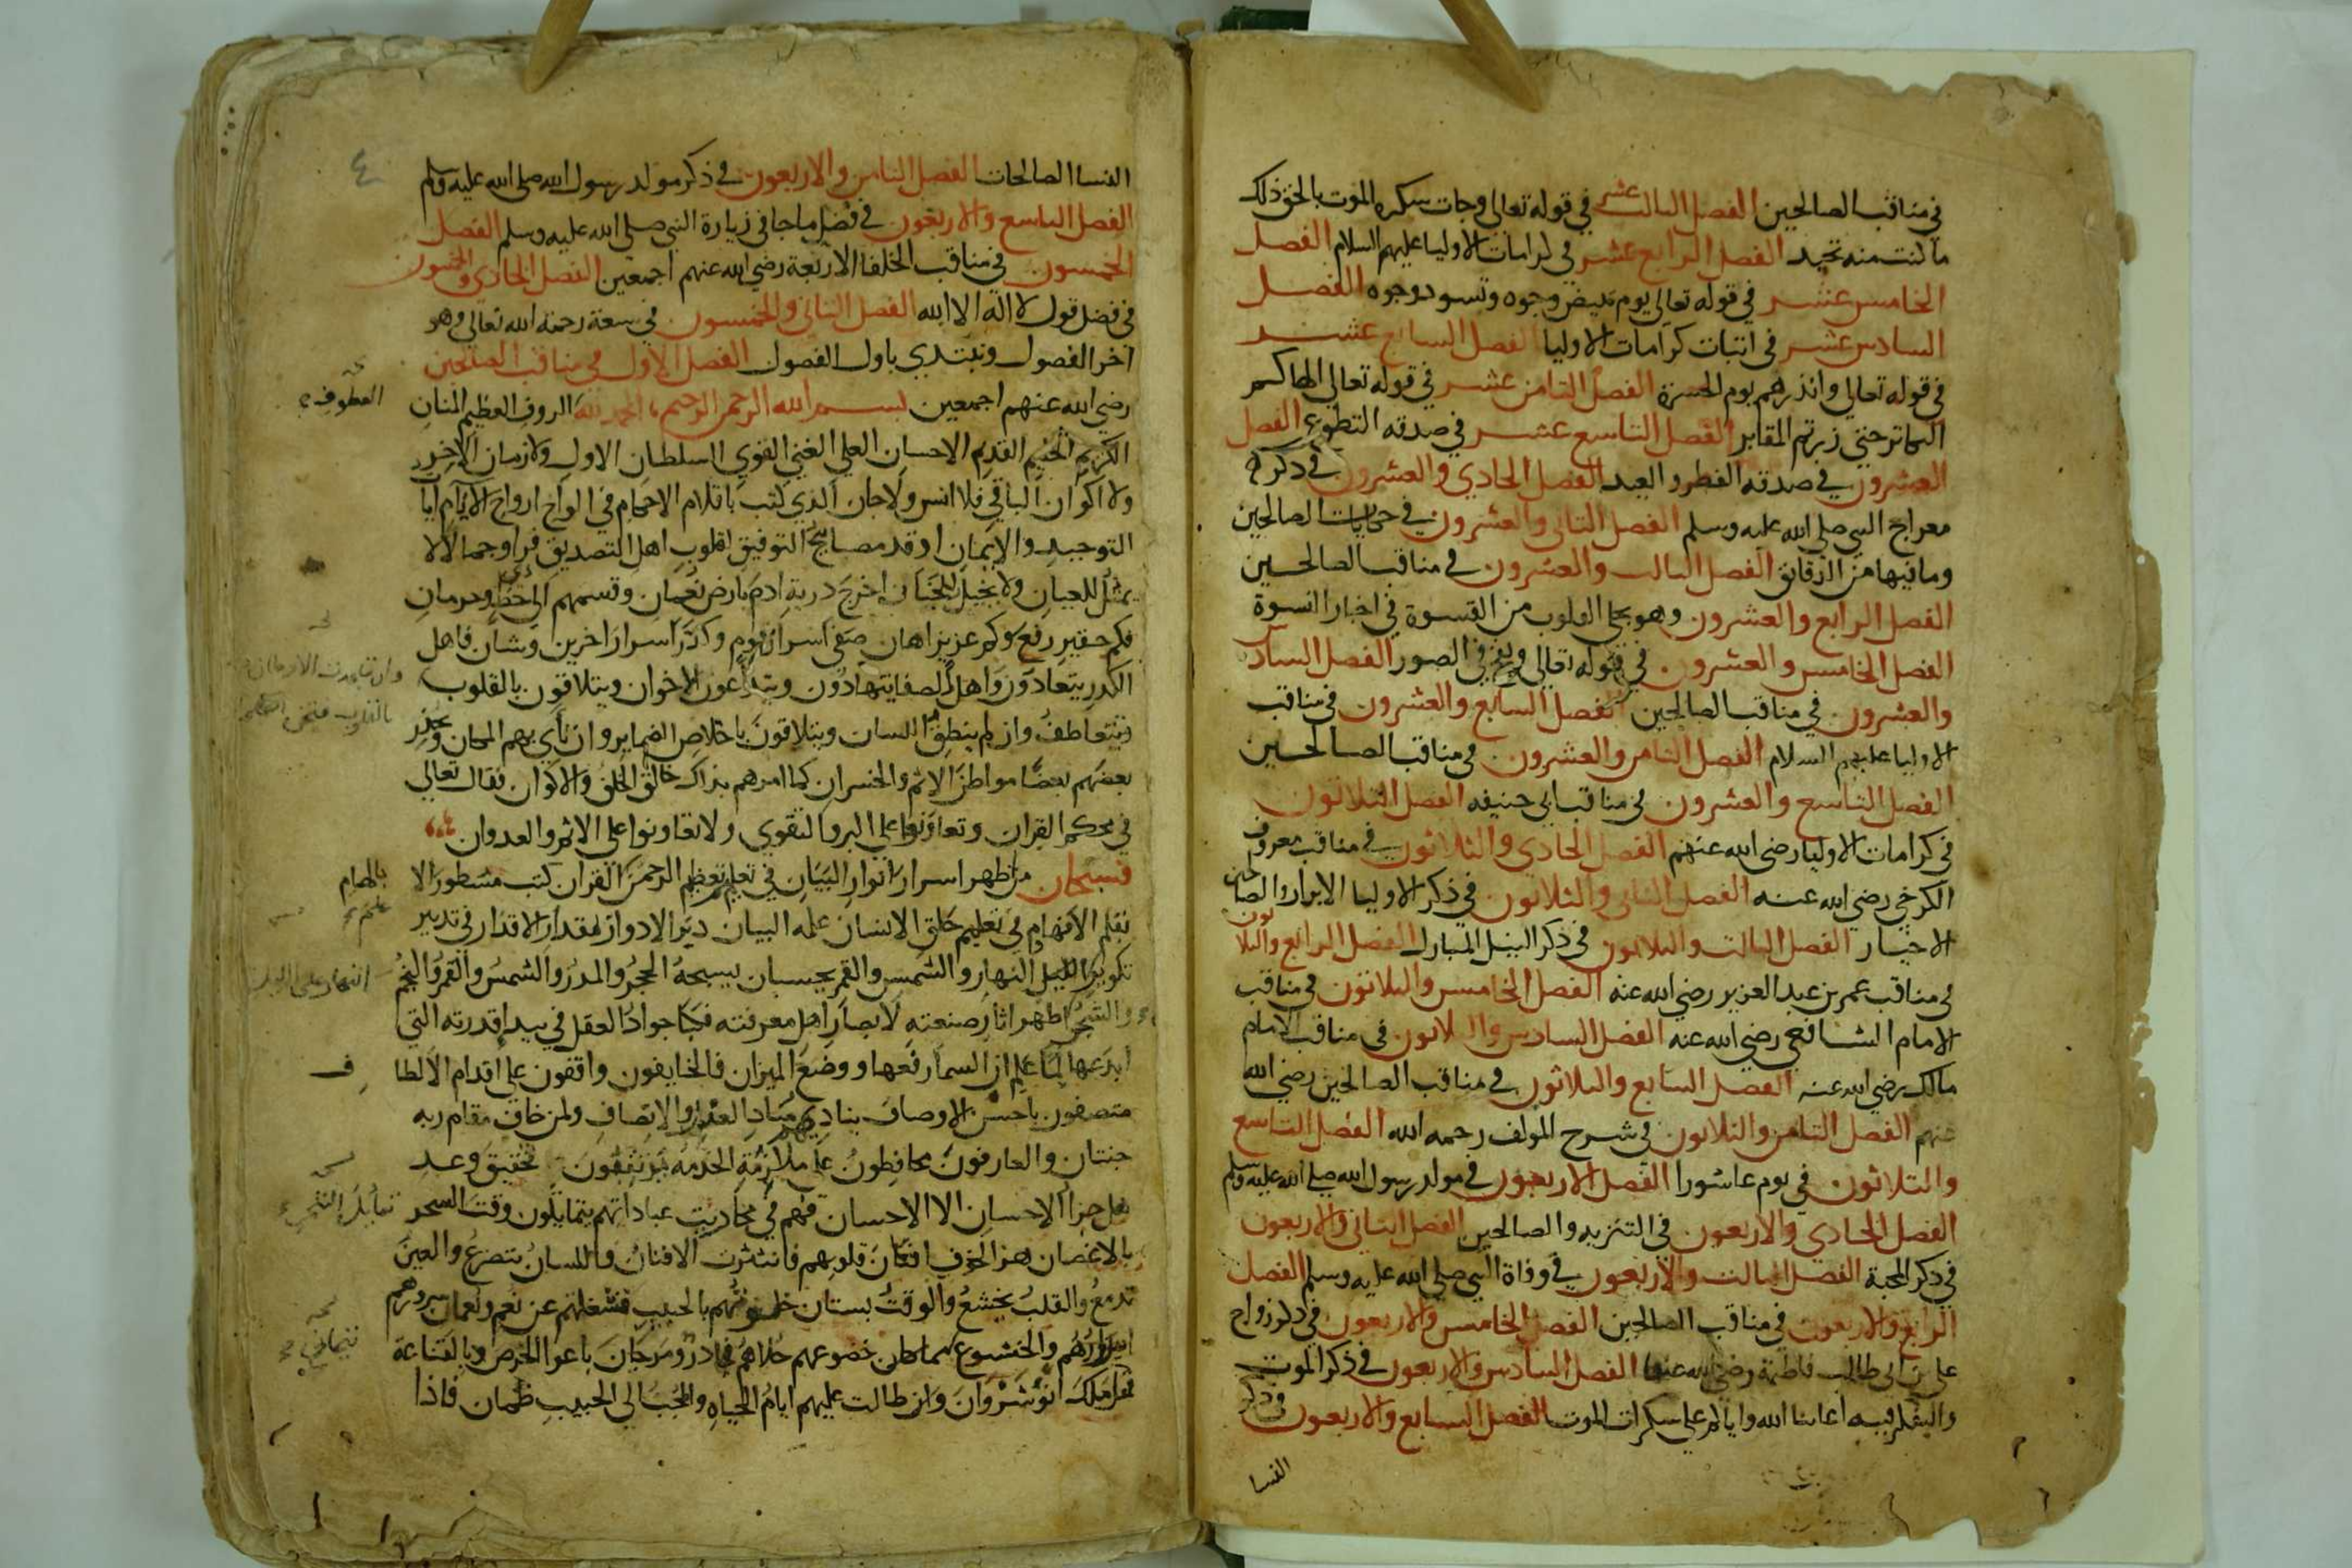 في مناقب الصالحين الفصل الثالث عشر في قوله تعالى وجات سكره الموت بالحق ذلك
ما كنت منه تحيد الفصل الرابع عشر في كرامات الاوليا عليهم السلام الفصل
الخامس عشر في قوله تعالى يوم تبيض وجوه وتسود وجوه الفصل
السادس عشر في اثبات كرامات الاوليا الفصل السابع عشر
في قوله تعالى وانذرهم يوم الحسرة الفصل الثامن عشر في قوله تعالى الهاكم
التكاثر حتى زرتم المقابر الفصل التاسع عشر في صدقه التطوع الفصل
العشرون في صدقه الفطر والعيد الفصل الحادي والعشرون في ذكر
معراج النبي صلى الله عليه وسلم الفصل الثاني والعشرون في حكايات الصالحين
وما فيها من الرقائق الفصل الثالث والعشرون في مناقب الصالحين
الفصل الرابع والعشرون وهو يجلي القلوب من القسوة في اخبار النسوة
الفصل الخامس والعشرون في قوله تعالى ونفخ في الصور الفصل السادس
والعشرون في مناقب الصالحين الفصل السابع والعشرون في مناقب
الاوليا عليهم السلام الفصل الثامن والعشرون في مناقب الصالحين
الفصل التاسع والعشرون في مناقب ابي حنيفه الفصل الثلاثون
في كرامات الاوليا رضي الله عنهم الفصل الحادي والثلاثون في مناقب معروف
الكرخي رضي الله عنه الفصل الثاني والثلاثون في ذكر الاوليا الابرار والصالحين
الاخيار الفصل الثالث والثلاثون في ذكر النيل المبارك الفصل الرابع والثلاثون
في مناقب عمر بن عبد العزيز رضي الله عنه الفصل الخامس والثلاثون في مناقب
الامام الشافعي رضي الله عنه الفصل السادس والثلاثون في مناقب الامام
مالك رضي الله عنه الفصل السابع والثلاثون في مناقب الصالحين رضي الله
عنهم الفصل الثامن والثلاثون في شرح المولف رحمه الله الفصل التاسع
والثلاثون في يوم عاشورا الفصل الاربعون في مولد رسول الله صلى الله عليه وسلم
الفصل الحادي والاربعون في التنزيه والصالحين الفصل الثاني والاربعون
في ذكر المحبة الفصل الثالث والاربعون في وفاة النبي صلى الله عليه وسلم الفصل
الرابع والاربعون في مناقب الصالحين الفصل الخامس والاربعون في ذكر زواج
علي بن ابي طالب فاطمة رضي الله عنها الفصل السادس والاربعون في ذكر الموت
والتفكر فيه اعاننا الله واياكم على سكرات الموت الفصل السابع والاربعون في ذكر
النسا
٤
النسا الصالحات الفصل الثامن والاربعون في ذكر مولد رسول الله صلى الله عليه وسلم
الفصل التاسع والاربعون في فضل ما جا في زيارة النبي صلى الله عليه وسلم الفصل
الخمسون في مناقب الخلفا الاربعة رضي الله عنهم اجمعين الفصل الحادي والخمسون
في فضل قول لا اله الا الله الفصل الثاني والخمسون في سعة رحمة الله تعالى وهو
اخر الفصول ونبتدي باول الفصول الفصل الاول في مناقب الصالحين
رضي الله عنهم اجمعين بسم الله الرحمن الرحيم الحمد لله الروف العظيم المنان
العطوف
الكريم الحليم القديم الاحسان العلي الغني القوي السلطان الاول ولا زمان الاخر
ولا اكوان الباقي فلا انس ولا جان الذي كتب باقلام الاحكام في الواح ارواح الانام ايا
التوحيد والايمان اوقد مصابيح التوفيق لقلوب اهل التصديق فراوا جمالا لا
يمثل للعيان ولا يخيل للجنان اخرج درية ادم بارض نعمان وقسمهم الى حظ وحرمان
فكم حقير رفع وكم عزيز اهان صفى اسرار قوم وكدر اسرار اخرين وشان فاهل
الكدر يتعادون واهل الصفا يتهادون ويتداعون الاخوان ويتلاقون بالقلوب
وتتعاطف وان لم ينطق اللسان ويتلاقون باخلاص الضماير وان ناى بهم المكان ويحذر
بعضهم بعضا مواطن الاثم والخسران كما امرهم بذاك خالق الخلق والاكوان فقال تعالى
في محكم القران وتعاونوا على البر والتقوى ولا تعاونوا على الاثم والعدوان
فسبحان من اظهر اسرار انوار البيان في تعليم تعظيم الرحمن القران كتب مسطور الالهام
بقلم الافهام في تعليم خلق الانسان علمه البيان دبر الادوار بمقدار الاقدار في تدبير
تكوير الليل النهار والشمس والقمر بحسبان يسبحه الحجر والمدر والشمس والقمر والنجم
والشجر اظهر اثار صنعته لابصار اهل معرفته فكبا جواد العقل في بيدا قدرته التي
ابدعها لما علم ان السما رفعها ووضع الميزان فالخايفون واقفون على اقدام الالطاف
متصفون باحسن الاوصاف يناديهم مناد العدل والانصاف ولمن خاف مقام ربه
جنتان والعارفون محافظون على ملازمة الخدمة يرتقبون تحقيق وعد
هل جزا الاحسان الا الاحسان فهم في محاريب عباداتهم يتمايلون وقت السحر
بالاغصان هز الخوف افنان قلوبهم فانتثرت الافنان فاللسان يتضرع والعين
تدمع والقلب يخشع والوقت بستان خلوتهم بالحبيب فشغلتهم عن نعم ونعمان سرورهم
اساورهم والخشوع تيجان خضوعهم حلاهم در ومرجان باعوا الحرص وبالقناعة
فما ملك انوشروان وان طالت عليهم ايام الحياه والمحب الى الحبيب ظمان فاذا